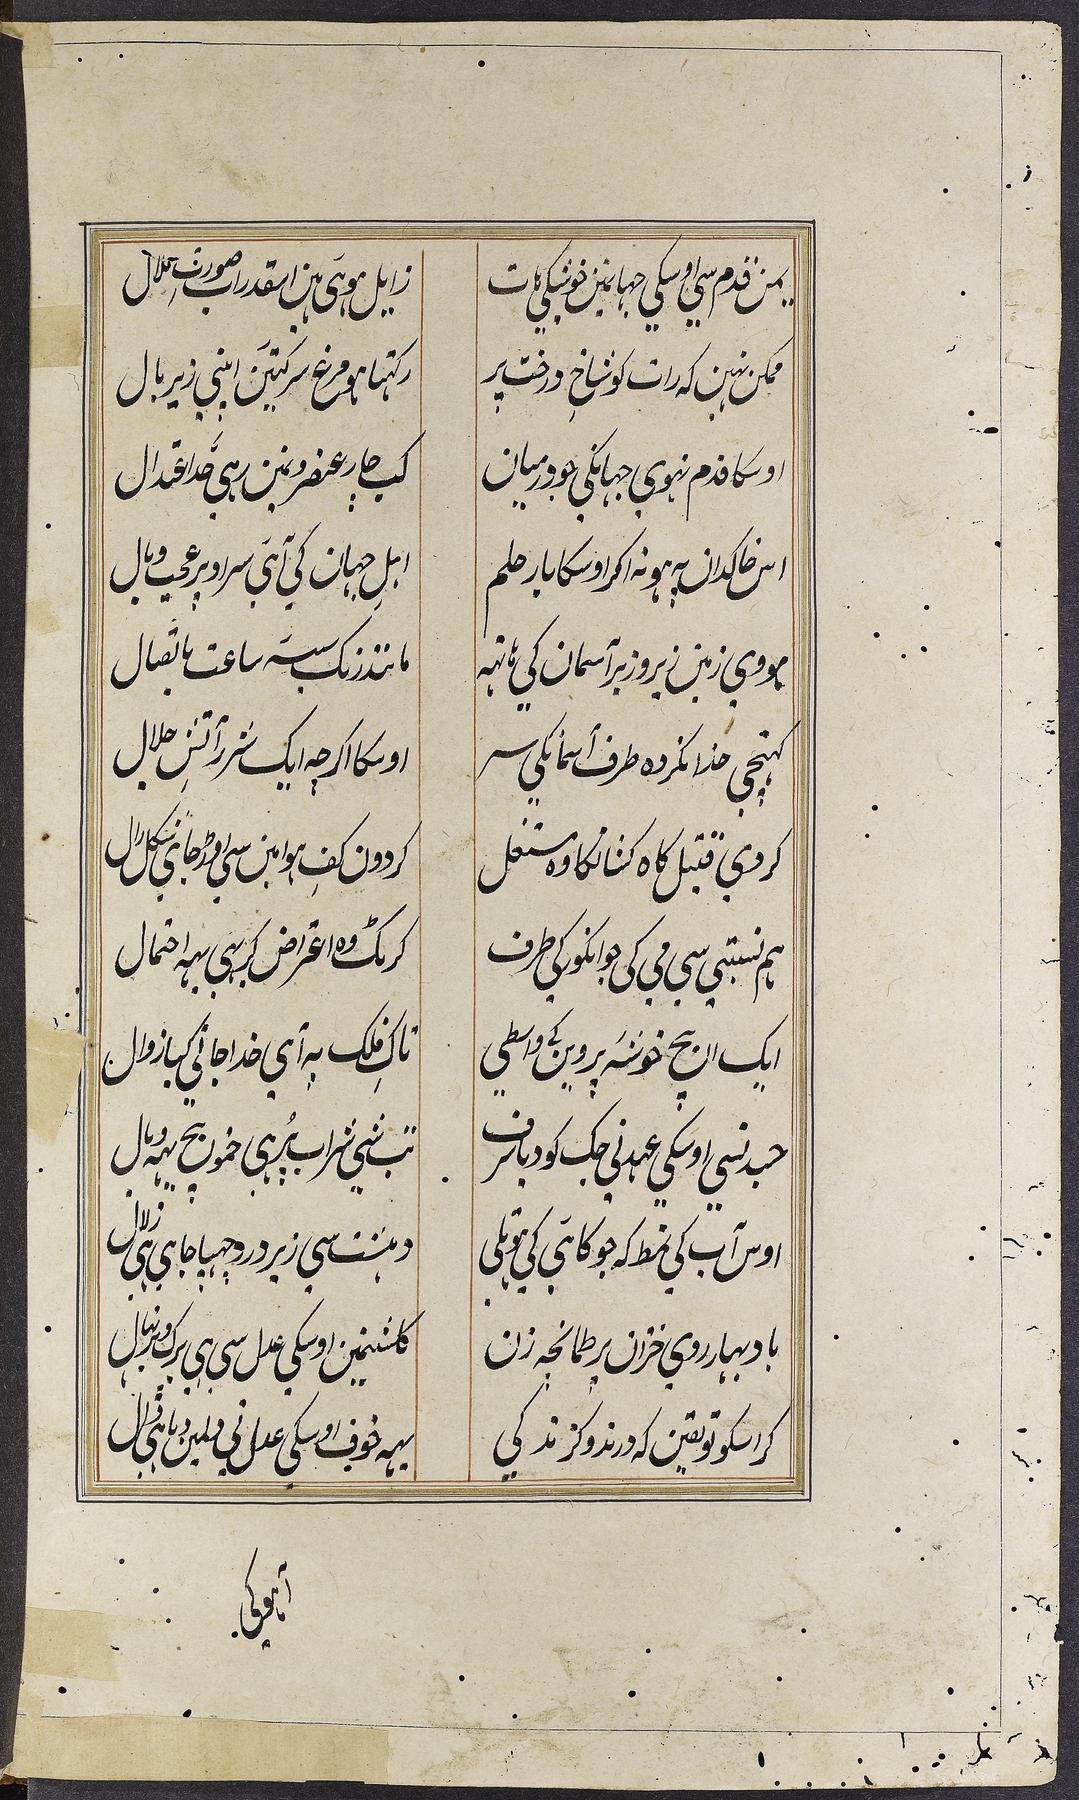 یمن قدم سی اوسکی جہانمین خوشیکی بات
زایل ہوئی ہین اسقدر اب صورت ملال
ممکن نہین کہ رات کو شاخ درخت پر
رکہتا ہو مرغ سر کتئین اپنی زیر بال
اوسکا قدم نہووی جہانکی جو درمیان
کب چار عنصرونمین رہی حد اعتدال
اس خاکدان پہ ہو نہ اکر اوسکا بار حلم
اہل جہان کی آئی سر اوپر عجب وبال
ہووی زمین زیر و زبر آسمان کی ہاتہہ
مانند رنک شیشہ ساعت باتصال
کہنچی خدا نکردہ طرف آسمانکی سر
اوسکا اکرچہ ایک شرر آتش جلال
کردی فتیل کاہ کشانکا وہ مشتعل
کردون کف ہوا مین سی اوڑ جای شکل رال
ہم نسبتی سی می کی جو انکور کی طرف
کر ٹک وہ اعتراض کری ہی یہہ احتمال
ایک ان بیچ خوشہ پروین کے واسطی
تاک فلک پہ آی خدا جانی کیا زوال
جبدنسی اوسکی عہد نی جک کو دیا شرف
تب سی شراب پر ہی خمون بیچ یہہ وبال
اوس آب کی نمط کہ جو کائی کی ہو تلی
دہشت سی زیر درد چہپا جای ہی زلال
باد بہار روی خزان پر طمانچہ زن
کلشنمین اوسکی عدل سی ہی برک ہر نہال
کر اسکو تو یقین کہ درند و کزند کی
یہہ خوف اوسکی عدل نی دلمین دیا ہی ڈال
آہو کی